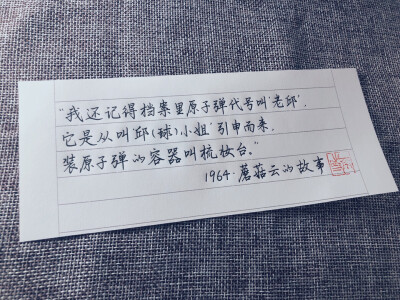 “我还记得档案里原子弹代号叫‘老邱’.
它是从叫邱(球)小姐'引申而来.
装原子弹的容器叫梳妆台.”
1964·蘑菇云的故事